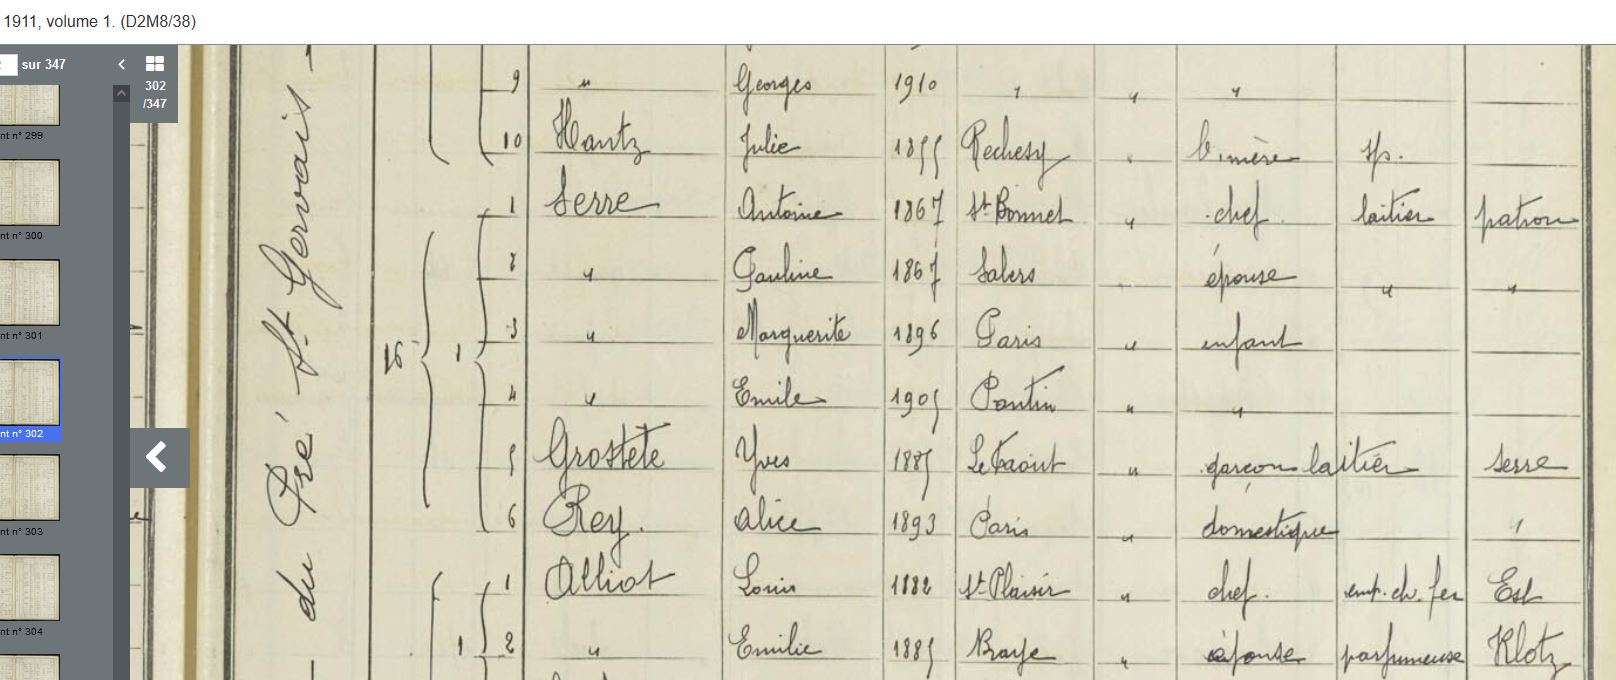 1911, volume 1. (D2M8/38)
sur 347
302
/347
nt n° 299
nt n° 300
nt n° 301
nt n° 302
nt n° 303
nt n° 304
du Pré St Gervais
9 " Georges 1910 " " "
10 Hantz Julie 1855 Rechesy " b. mère sp.
16 1 1 Serre Antoine 1867 St Bonnet " chef laitier patron
2 " Pauline 1867 Salers " épouse " "
3 " Marguerite 1896 Paris " enfant
4 " Emile 1905 Pantin " "
5 Grostete Yves 1885 Le Faouët " garçon laitier Serre
6 Rey Alice 1893 Paris " domestique "
1 Alliot Louis 1882 St Plaisir " chef. emp. ch. fer Est
1 2 " Emilie 1885 Braye " épouse parfumeuse Klotz